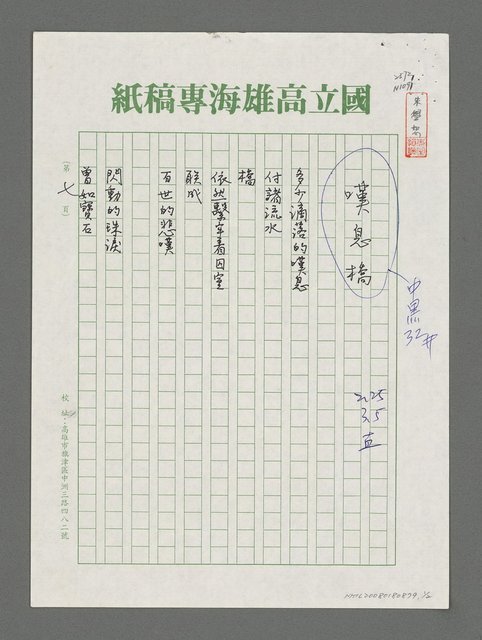 國立高雄海專稿紙
嘆息橋
多少滴落的嘆息
付諸流水
橋
依然繫牢着囚室
联成
百世的悲嘆
閃動的珠淚
曾如寶石
(第七頁)
校址：高雄市旗津區中洲三路四八二號
中黑
32井
2.25
3.5
直
朱學恕
NMTL20080180879 1/2